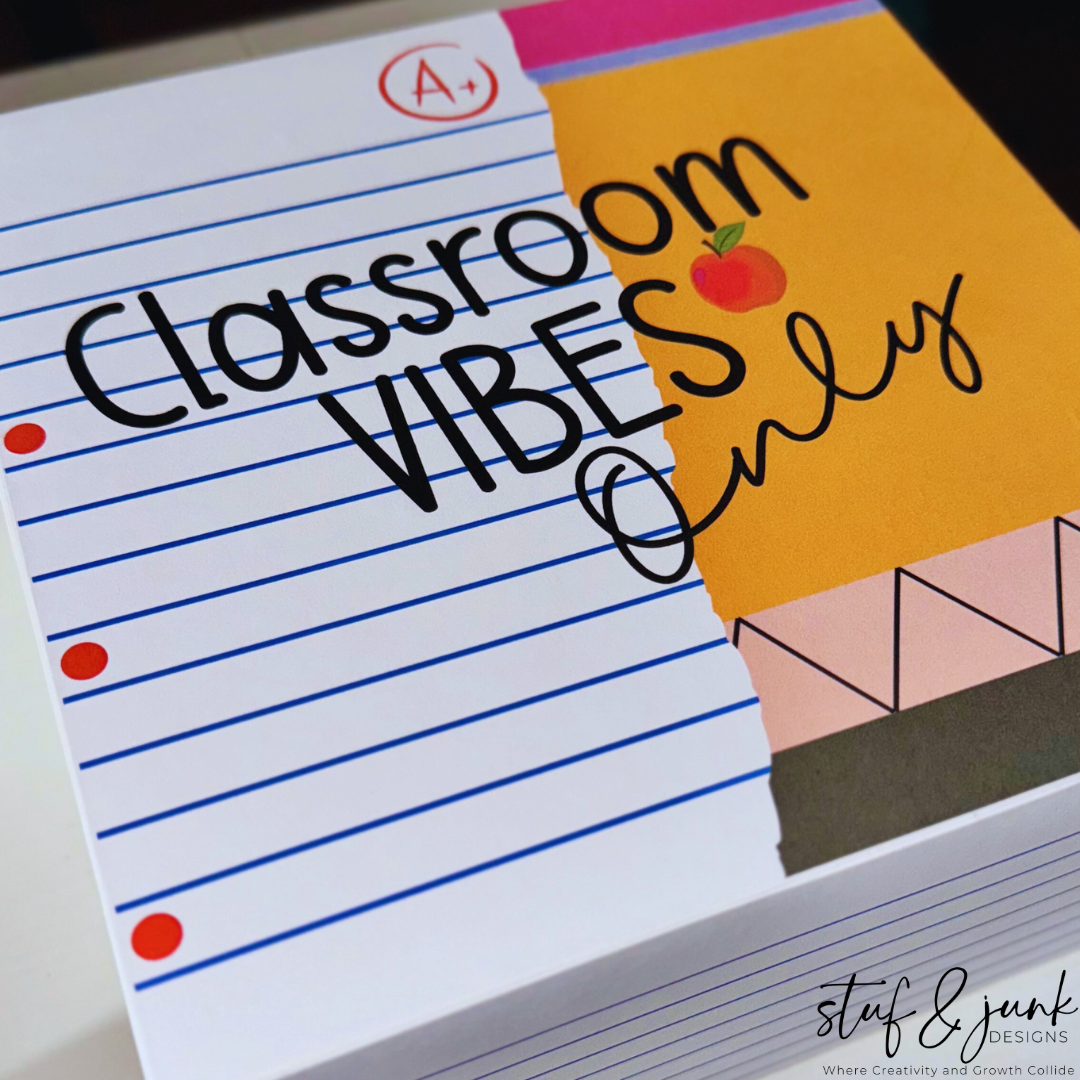 A+
Classroom
VIBES
Only
stuf & junk
DESIGNS
Where Creativity and Growth Collide